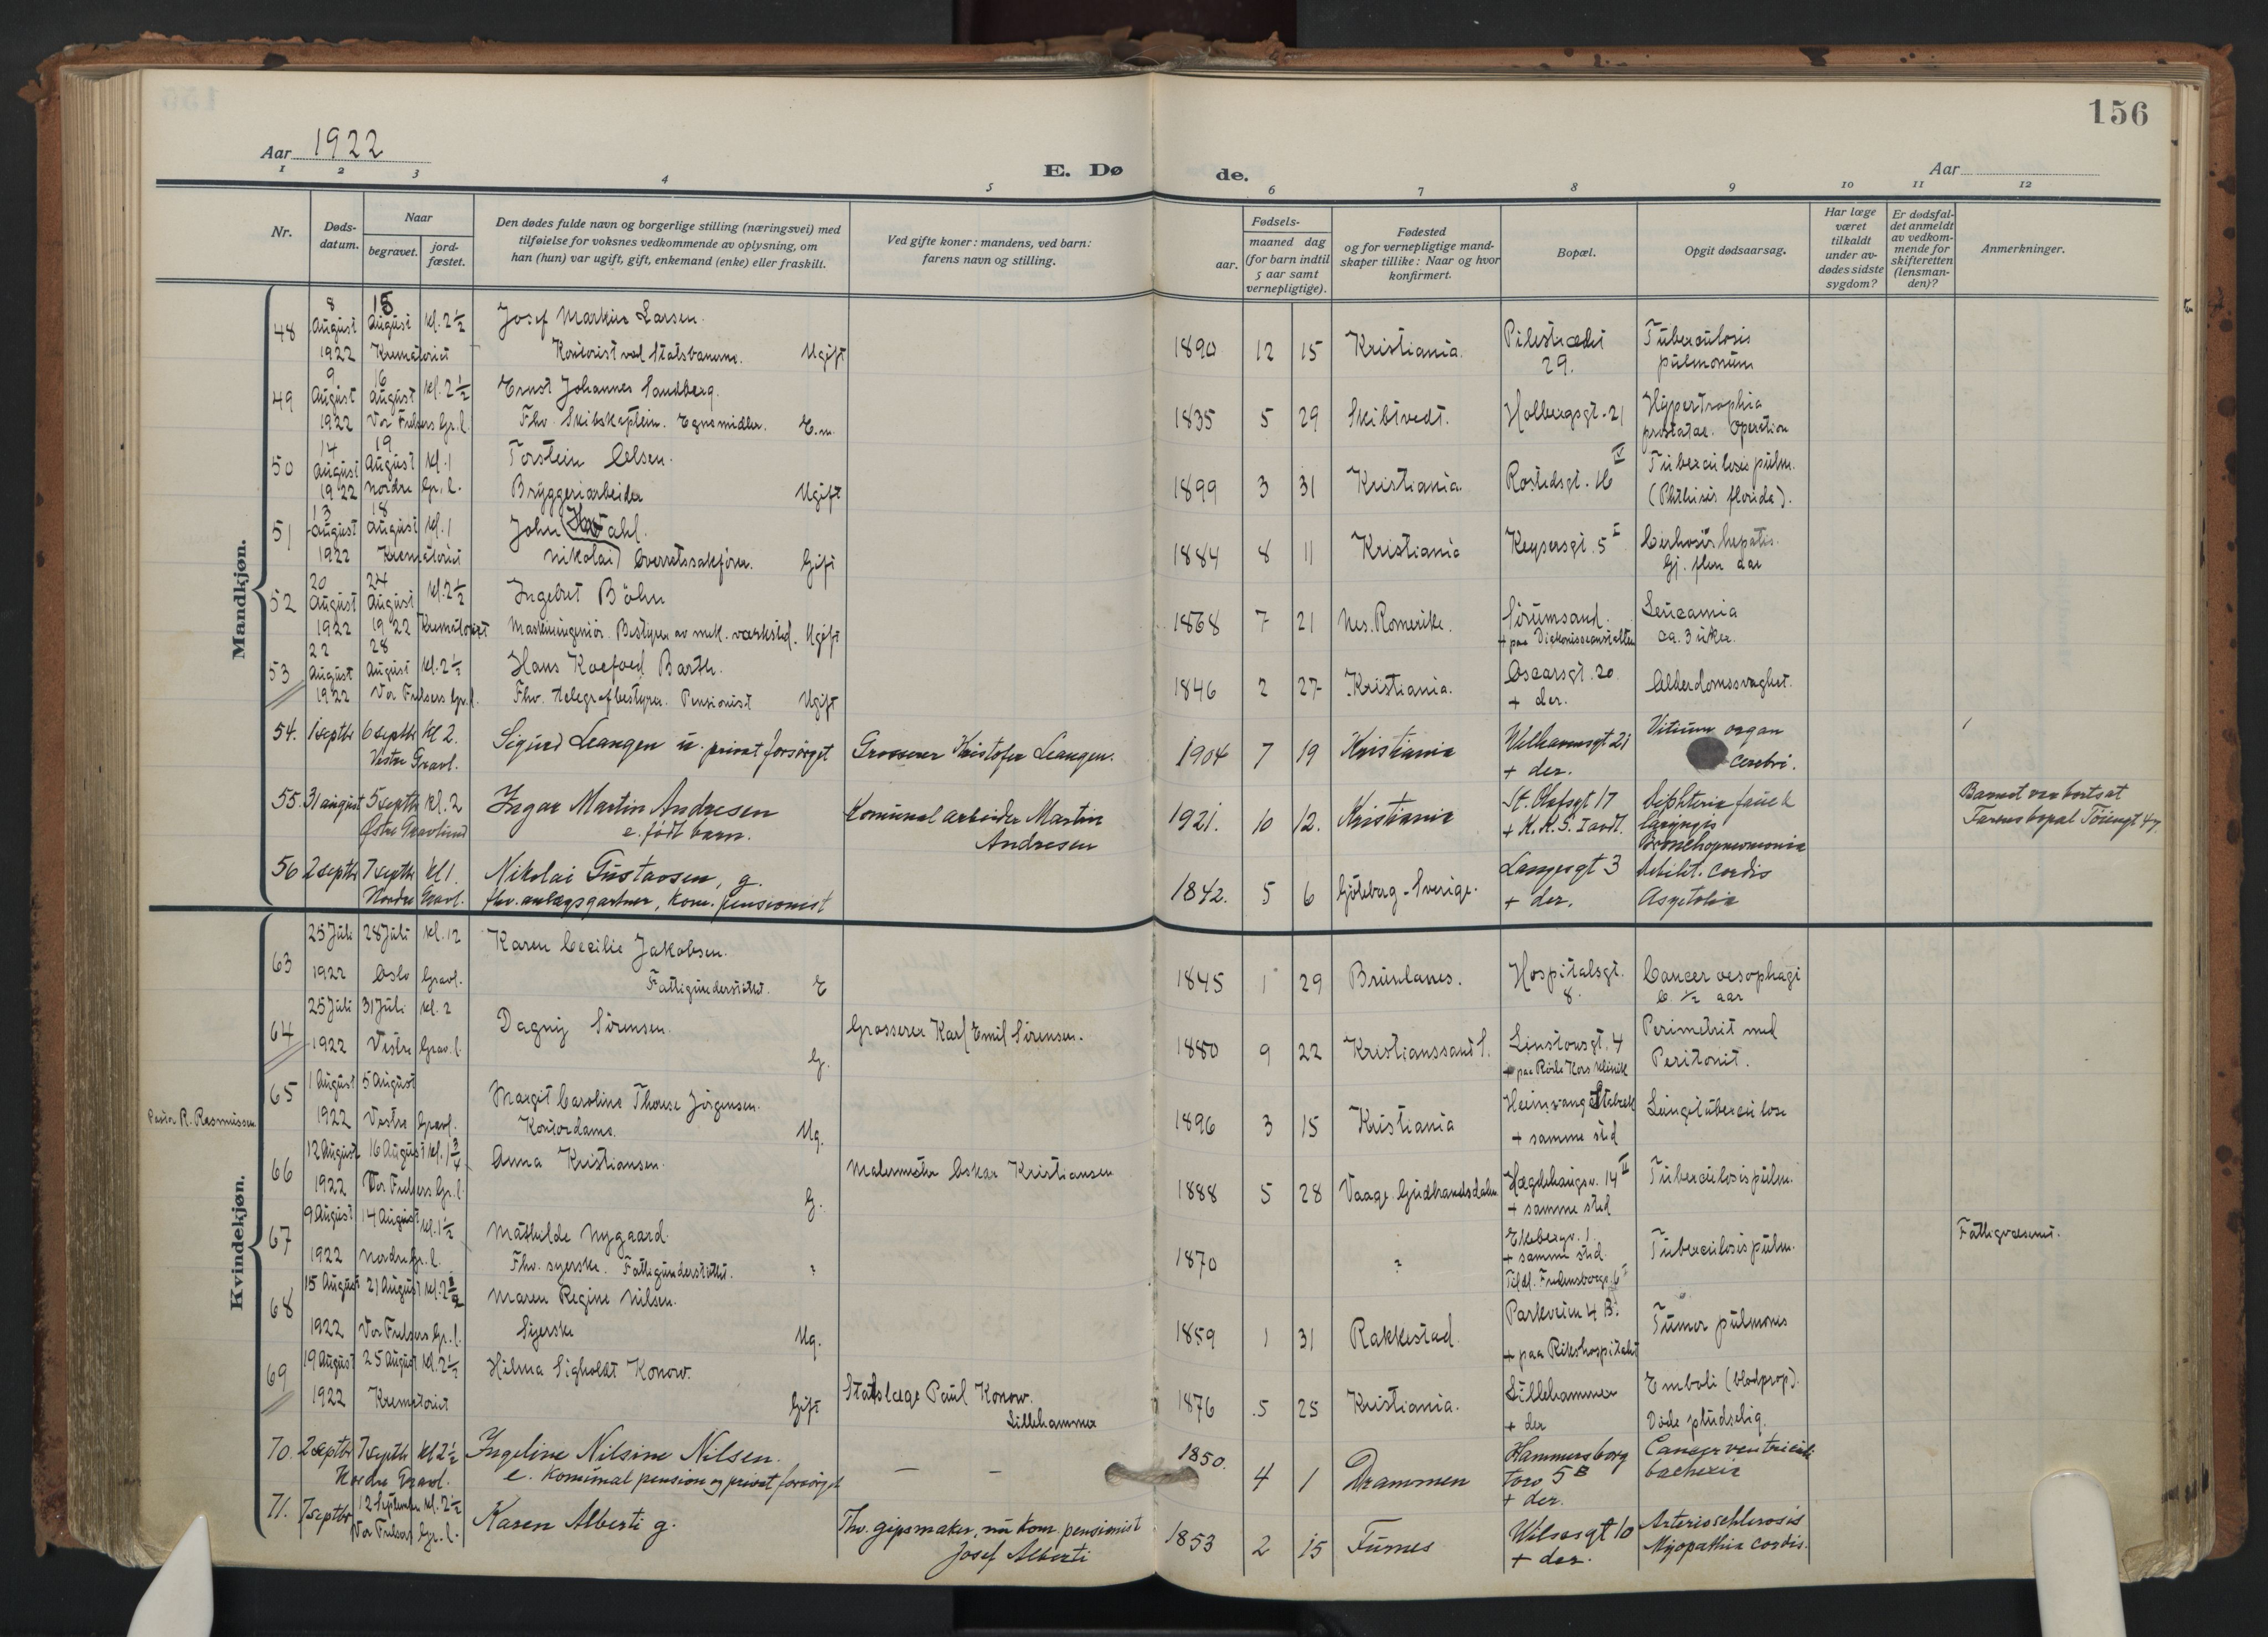 156
Aar 1922
E. Døde.
Aar
1 2 3 4 5 6 7 8 9 10 11 12
Nr.
Døds-
datum.
Naar
begravet.
jord-
fæstet.
Den dødes fulde navn og borgerlige stilling (næringsvei) med
tilføielse for voksnes vedkommende av oplysning, om
han (hun) var ugift, gift, enkemand (enke) eller fraskilt.
Ved gifte koner: mandens, ved barn:
farens navn og stilling.
Fødsels-
aar.
maaned dag
(for barn indtil
5 aar samt
vernepligtige).
Fødested
og for vernepligtige mand-
skaper tillike: Naar og hvor
konfirmert.
Bopæl.
Opgit dødsaarsag.
Har læge
været
tilkaldt
under av-
dødes sidste
sygdom?
Er dødsfal-
det anmeldt
av vedkom-
mende for
skifteretten
(lensman-
den)?
Anmerkninger.
Mandkjøn.
8 15
48 August August kl. 2 1/2 Josef Markus Larsen.
1922 Krematoriet Kontorist ved Statsbanerne. Ugift
1890 12 15 Kristiania. Pilestrædet Tuberculosis
29. pulmonum
9 16
49 August August kl. 2 1/2 Ernst Johannes Sandberg.
1922 Vor Frelsers Gr. l. Fhv. Skibskaptein. Egne midler. E.m.
1835 5 29 Skibtvedt. Holbergsgt. 21 Hypertrophia
prostatae. Operation
14 19
50 August August kl. 1 Torstein Olsen.
1922 Nordre Gr. l. Bryggeriarbeider Ugift
1899 3 31 Kristiania. Rostedsgt. 16 IV Tuberculosis pulm.
(Phthisis florida).
13 18
51 August August kl. 1 John dahl.
1922 Krematoriet Nikolai) Overretssakfører. Gift
1884 8 11 Kristiania Keysersgt. 5 I Cirhosis hepatis.
Gj. flere aar
20 24
52 August August kl. 2 1/2 Ingebret Böhn
1922 1922 Krematoriet Maskiningeniør. Bestyrer av mek. værksted. Ugift
1868 7 21 Nes. Romerike. Sørumsand. Leucæmia
+ paa Diakonisseanstalten ca. 3 uker.
22 28
53 August August kl. 2 1/2 Hans Koefoed Barth.
1922 Vor Frelsers Gr. l. Fhv. telegrafbestyrer. Pensionist Ugift
1846 2 27 Kristiania. Oscarsgt. 20 Alderdomssvaghet.
+ der.
54. 1 septbr 6 septbr kl 2. Sigurd Leangen u. privat forsørget Grosserer Kristofer Leangen.
Vestre Gravl.
1904 7 19 Kristiania Welhavensgt 21 Vitium organ
+ der. cerebri.
55. 31 august 5 septbr kl. 2 Ingar Martin Andresen Komunal arbeider Martin
Østre Gravlund e. født barn. Andresen
1921. 10 12. Kristiania St. Olafsgt 17 Diphteria fauc &
+ K. K. S. I avd. laryngis
Bronchopneumonia
Barnet var bortsat
Farens bopæl Töiengt 47.
56 2 septbr 7 septbr kl 1. Nikolai Gustavsen, g.
Nordre Gravl. fhv. anlægsgartner, kom. pensionist
1842. 5 6 Gjøteborg - Sverige. Langesgt 3 Debilit. cordis
+ der. Asystolia
Kvindekjøn.
25 Juli 28 Juli kl. 12
63 Karen Cecilie Jakobsen.
1922 Oslo Gravl. Fattigunderstøttet. E
1845 1 29 Brunlanes. Hospitalsgt. Cancer oesophagi
8. c. 1/2 aar
25 Juli 31 Juli kl. 2
64 Dagny Sørensen. Grosserer Karl Emil Sørensen.
1922 Vestre Grav. l. G.
1880 9 22 Kristianssand S. Linstowsgt. 4 Perimetrit med
+ paa Røde Kors klinik Peritonit.
1 August 5 August
65 Margit Caroline Therese Jørgensen.
Pastor R. Rasmussen
1922 Vestre Gravl. Kontordame. Ug.
1896 3 15 Kristiania Heimvang Stabekk Lungetuberculose
+ samme sted
12 August 16 August kl. 1 3/4
66 Anna Kristiansen. Malermester Oskar Kristiansen
1922 Vor Frelsers Gr. l. G.
1888 5 28 Vaage. Gudbrandsdalen Hægdehaugsv. 14 II Tuberculosis pulm.
+ samme sted
9 August 14 August kl. 1 1/2
67 Mathilde Nygaard.
1922 Nordre Gr. l. Fhv. syerske. Fattigunderstøttet. ?
1870 ? Ekebergv. 1. Tuberculosis pulm. Fattigvæsenet.
+ samme sted
Tidl. Fredensborgv. 6 I
15 August 21 August kl. 2 1/2
68 Maren Regine Nilsen.
1922 Vor Frelsers Gr. l. Syerske Ug.
1859 1 31 Rakkestad. Parkveien 4 B. Tumor pulmones
+ paa Rikshospitalet
19 August 25 August kl. 2 1/2
69 Hilma Sigholdt Konow.
1922 Krematoriet Gift Statslæge Paul Konow.
Lillehammer
1876 5 25 Kristiania. Lillehammer Emboli (blodprop).
+ der Døde pludselig.
70. 2 septbr 7 septbr kl 2 1/2 Ingeline Nilsine Nilsen. — —
Nordre Gravl. e. komunal pension og privat forsørget
1850. 4 1 Drammen Hammersborg Cancer ventriculi
torv 5 B cachexia
+ der.
71. 7 septbr 12 September kl. 2 1/2 Karen Alberti g. Fhv. gipsmaker, nu kom. pensionist
Vor Frelsers Gr. l. Josef Alberti
1853 2 15 Furnes Wilsesgt 10 Arterioschlerosis
+ der. Myopathia cordis.